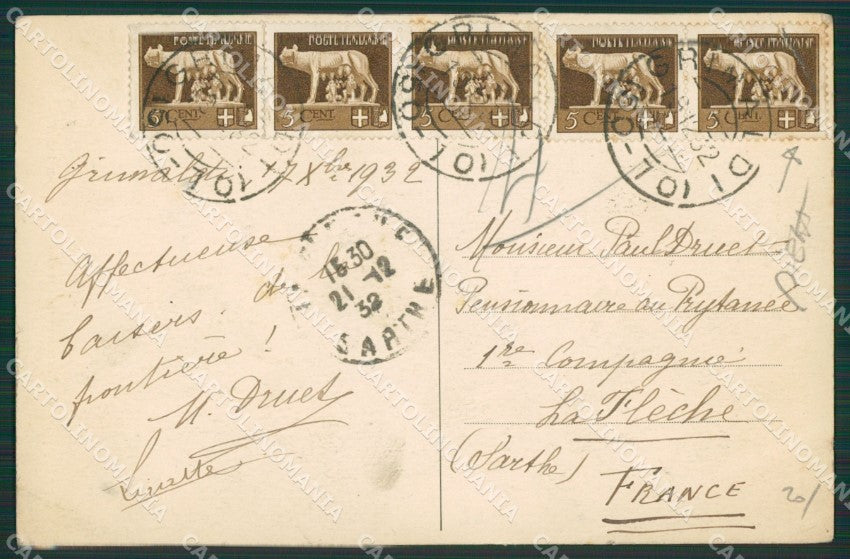 POSTE ITALIANE POSTE ITALIANE POSTE ITALIANE POSTE ITALIANE POSTE ITALIANE
5 CENT. 5 CENT. 5 CENT. 5 CENT. 5 CENT.
GRIMALDI
Grimaldi 1932
LA FLECHE
15 30
21 - 12
32
SARTHE
Affectueuse
baisers de la
frontière !
M. Druet
Monsieur Paul Druet
Pensionnaire au Prytanée
1re Compagnie
La Flèche
(Sarthe)
FRANCE
20/
CARTOLINOMANIA